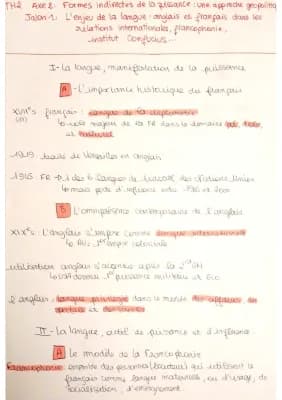 TH2 Axe 2: Formes indirectes de la puissance: une approche géopolitiq
Jalon 1: L'enjeu de la langue: anglais et français dans les
relations internationales, francophonie,
institut Confucius...
I- La langue, manifestation de la puissance
A - L'importance historique du français
XVII's: français: langue de la diplomatie
↳ role majeur de la FR dans le domaine
et
1919: traité de Versailles en anglais
1945: FR → 1 des 6 langues de travail des Nations Unies
↳ mais perte d'influence entre 1945 et 2000
B L'omniprésence contemporaine de l'anglais
XIX's: L'anglais s'impose comme langue internationale
↳ RU: 1er empire colonial
utilisation anglais s'accentue après la 2nd GM
↳ USA 1ère puissance militaire et Eco
l'anglais: langue privilégiée dans le monde des affaires, des
sciences et des
II - La langue, outil de puissance et d'influence.
A Le modèle de la Francophonie
Francophonie: ensemble des personnes/locuteurs qui utilisent le
français comme langue maternelle, ou d'usage, de
socialisation, d'enseignement.